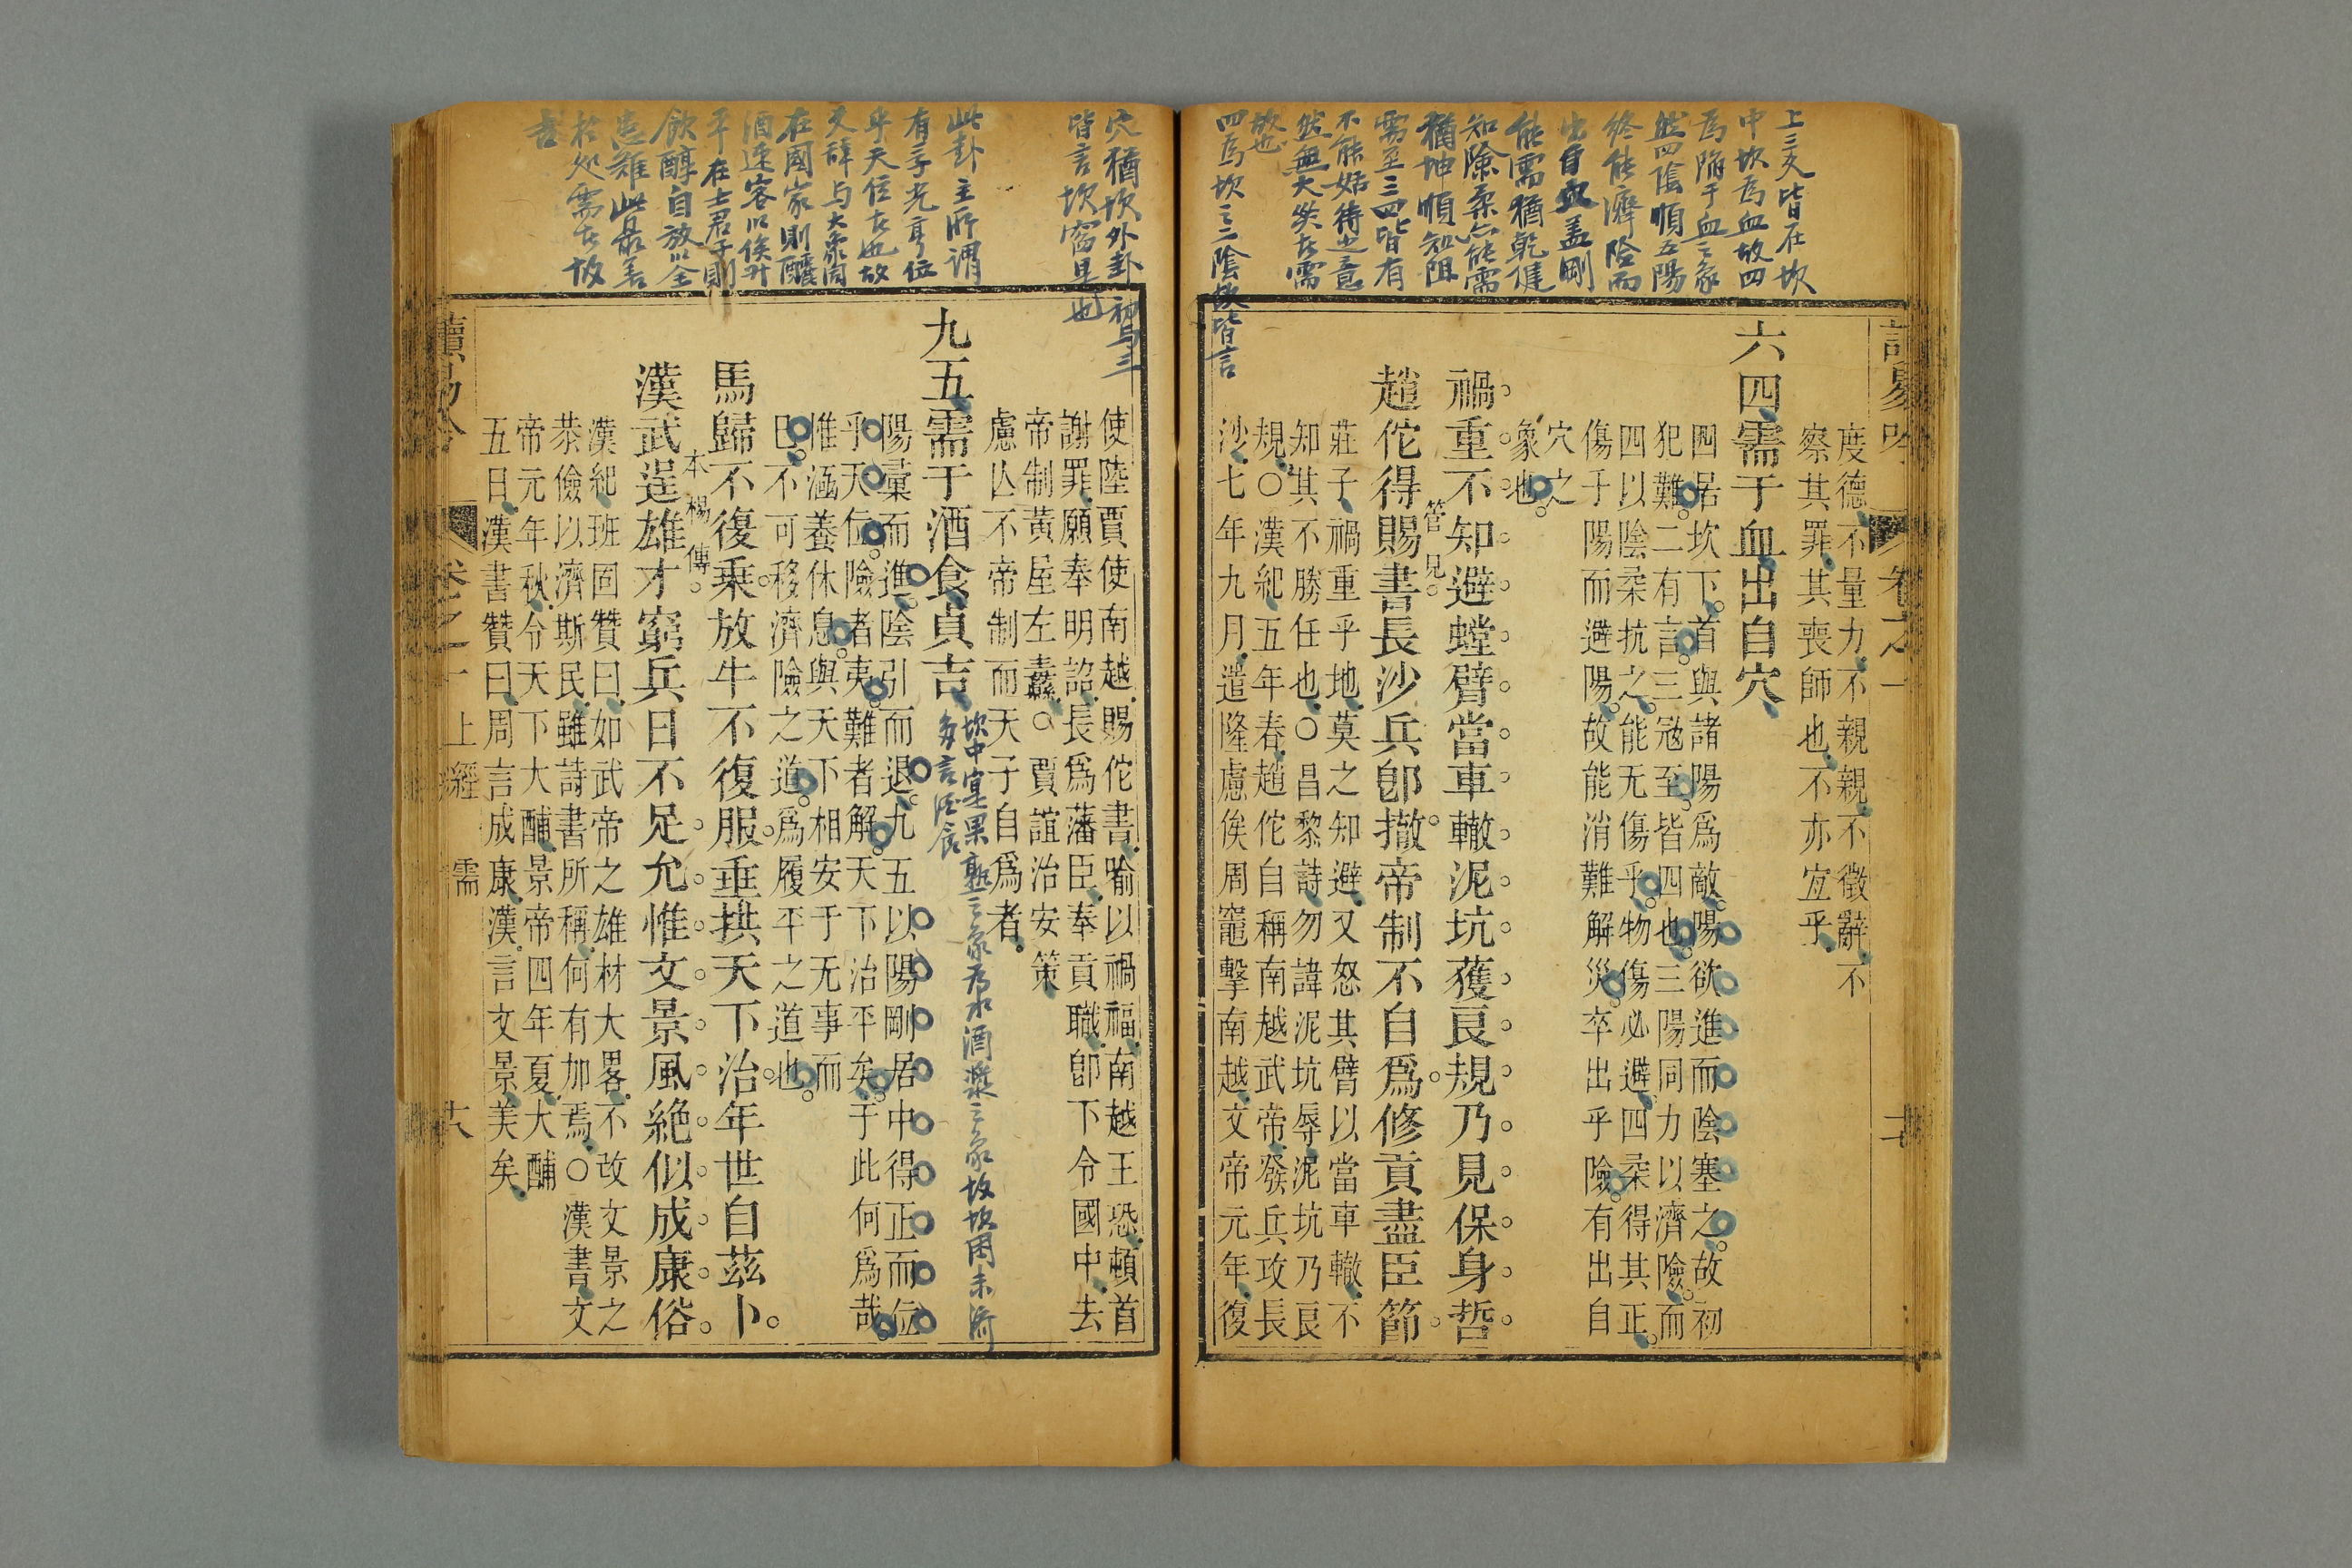 上三爻皆在坎
中坎爲血故四
爲陷于血之象
然四陰順五陽
終能濟險而
出自血蓋剛
能需猶乾健
知險柔亦能需
猶坤順知阻
需至三四皆有
不能姑待之意
然無大災在需
故也
四爲坎之二陰故皆言
度德不量力不親親不徵辭不
察其罪其喪師也不亦宜乎
六四需于血出自穴
四居坎下首與諸陽爲敵陽欲進而陰塞之故初
犯難二有言三冦至皆四也三陽同力以濟險而
四以陰柔抗之能无傷乎物傷必避四柔得其正
傷于陽而避陽故能消難解災卒出乎險有出自
穴之
象也
禍重不知避螳臂當車轍泥坑獲良規乃見保身哲
管見
趙佗得賜書長沙兵卽撤帝制不自爲修貢盡臣節
莊子禍重乎地莫之知避又怒其臂以當車轍不
知其不勝任也○昌黎詩勿諱泥坑辱泥坑乃良
規○漢紀五年春趙佗自稱南越武帝發兵攻長
沙七年九月遣隆慮侯周竈擊南越文帝元年復
讀易吟
卷之一
十七
穴猶坎外卦初与三
皆言坎窞是也
此卦主所謂
有孚光亨位
乎天位在也故
爻辞与大象同
在國家則釀
酒速客以俟升
平在士君子則
飲醇自放以全
患難此最善
於処需在故
吉
使陸賈使南越賜佗書喻以禍福南越王恐頓首
謝罪願奉明詔長爲藩臣奉貢職卽下令國中去
帝制黃屋左纛○賈誼治安策
慮亾不帝制而天子自爲者
九五需于酒食貞吉
坎中實果熟之象爲水酒漿之象故坎困未濟
多言酒食
陽彙而進陰引而退九五以陽剛居中得正而位
乎天位險者夷難者解天下治平矣于此何爲哉
惟涵養休息與天下相安于无事而
已不可移濟險之道爲履平之道也
馬歸不復乘放牛不復服垂拱天下治年世自茲卜
本楊傳
漢武逞雄才窮兵日不足允惟文景風絶似成康俗
漢紀班固贊曰如武帝之雄材大畧不改文景之
恭儉以濟斯民雖詩書所稱何有加焉○漢書文
帝元年秋令天下大酺景帝四年夏大酺
五日漢書贊曰周言成康漢言文景美矣
讀易吟
卷之一
上經
需
十八